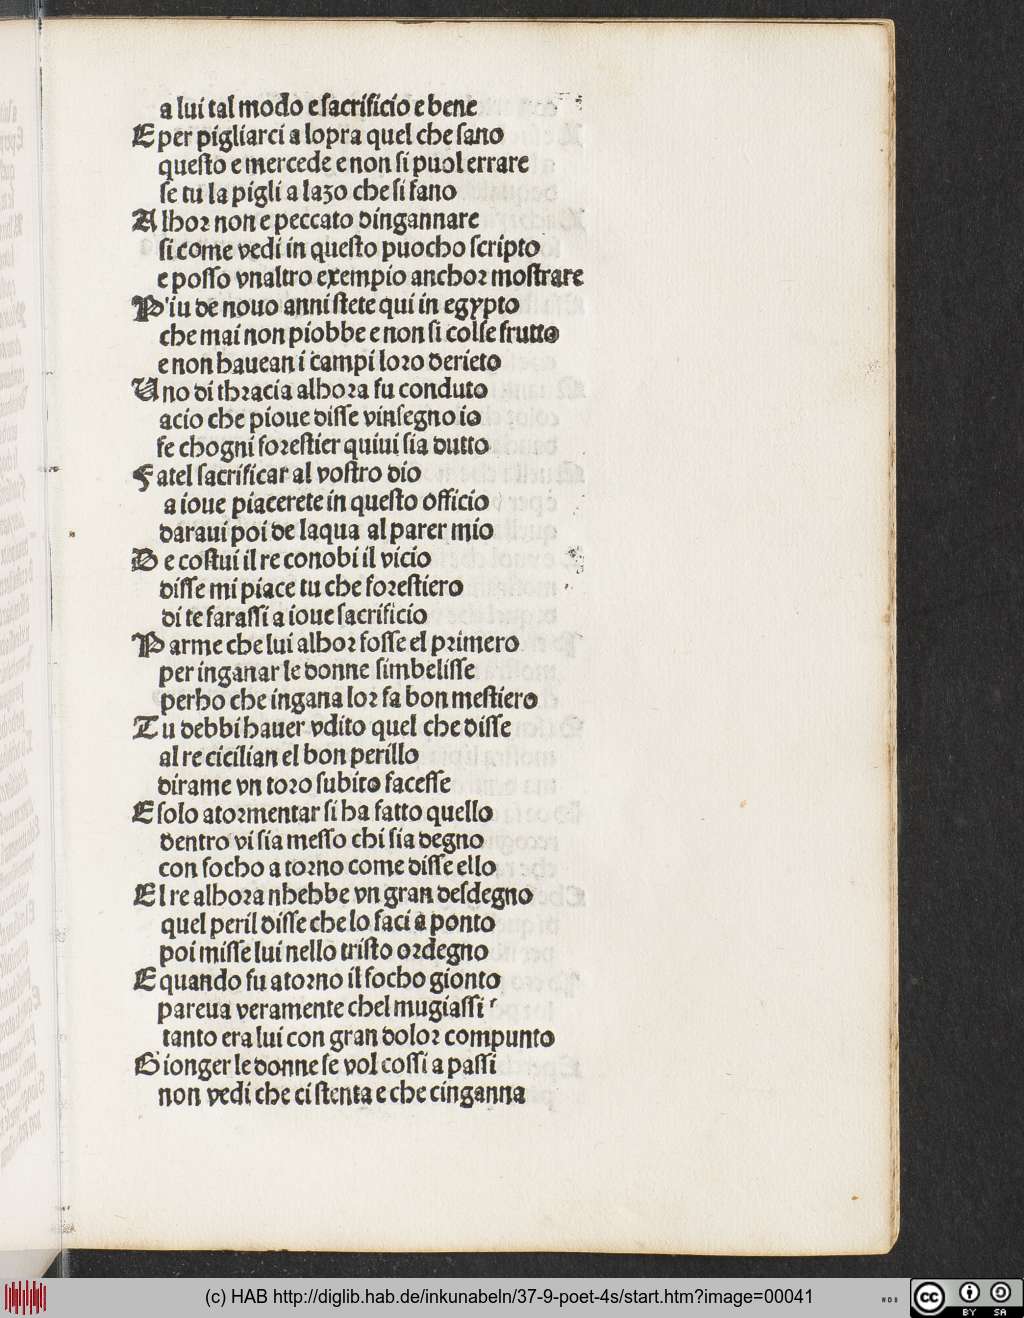 a lui tal modo e ſacrificio e bene
E per pigliarci a lopra quel che ſano
queſto e mercede e non ſi puol errare
ſe tu la pigli a lazo che ſi fano
A lhor non e peccato dingannare
ſi come vedi in queſto puocho ſcripto
e poſſo vnaltro exempio anchor moſtrare
P'iu de nouo anni ſtete qui in egypto
che mai non piobbe e non ſi colſe frutto
e non hauean i campi loro derieto
U no di thracia alhora fu conduto
acio che pioue diſſe vinſegno io
fe chogni foreſtier quiui ſia dutto
F atel ſacrificar al voſtro dio
a ioue piacerete in queſto officio
daraui poi de laqua al parer mio
D e coſtui il re conobi il vicio
diſſe mi piace tu che foreſtiero
di te faraſſi a ioue ſacrificio
P arme che lui alhor foſſe el primero
per inganar le donne ſimbeliſſe
perho che ingana lor fa bon meſtiero
T u debbi hauer vdito quel che diſſe
al re cicilian el bon perillo
dirame vn toro ſubito faceſſe
E ſolo atormentar ſi ha fatto quello
dentro vi ſia meſſo chi ſia degno
con focho a torno come diſſe ello
E l re alhora nhebbe vn gran deſdegno
quel peril diſſe che lo faci a ponto
poi miſſe lui nello triſto ordegno
E quando fu atorno il focho gionto
pareua veramente chel mugiaſſi
tanto era lui con gran dolor compunto
G ionger le donne ſe vol coſſi a paſſi
non vedi che ci ſtenta e che cinganna
(c) HAB http://diglib.hab.de/inkunabeln/37-9-poet-4s/start.htm?image=00041
cc BY SA